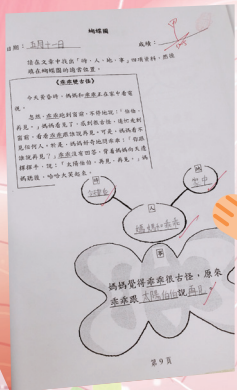 蝴蝶園
日期：五月十一日 成績：甲
請在文章中找出「時、人、地、事」四項資料，然後
填在蝴蝶園的適當位置。
《乖乖變古怪》
今天黃昏時，媽媽和乖乖正在家中看電
視。
忽然，乖乖跑到窗前，不停地說：「伯伯，
再見。」媽媽看見了，感到很古怪，連忙走到
窗前，看看乖乖跟誰說再見。可是，媽媽看不
見任何人。於是，媽媽好奇地問乖乖：「你跟
誰說再見？」乖乖沒有回答，望着媽媽向天邊
揮揮手，說：「太陽伯伯，再見，再見。」媽
媽聽後，哈哈大笑起來。
時
地
家中
人
媽媽和乖乖
事
媽媽覺得乖乖很古怪，原來
乖乖跟太陽伯伯說再見。
第9頁